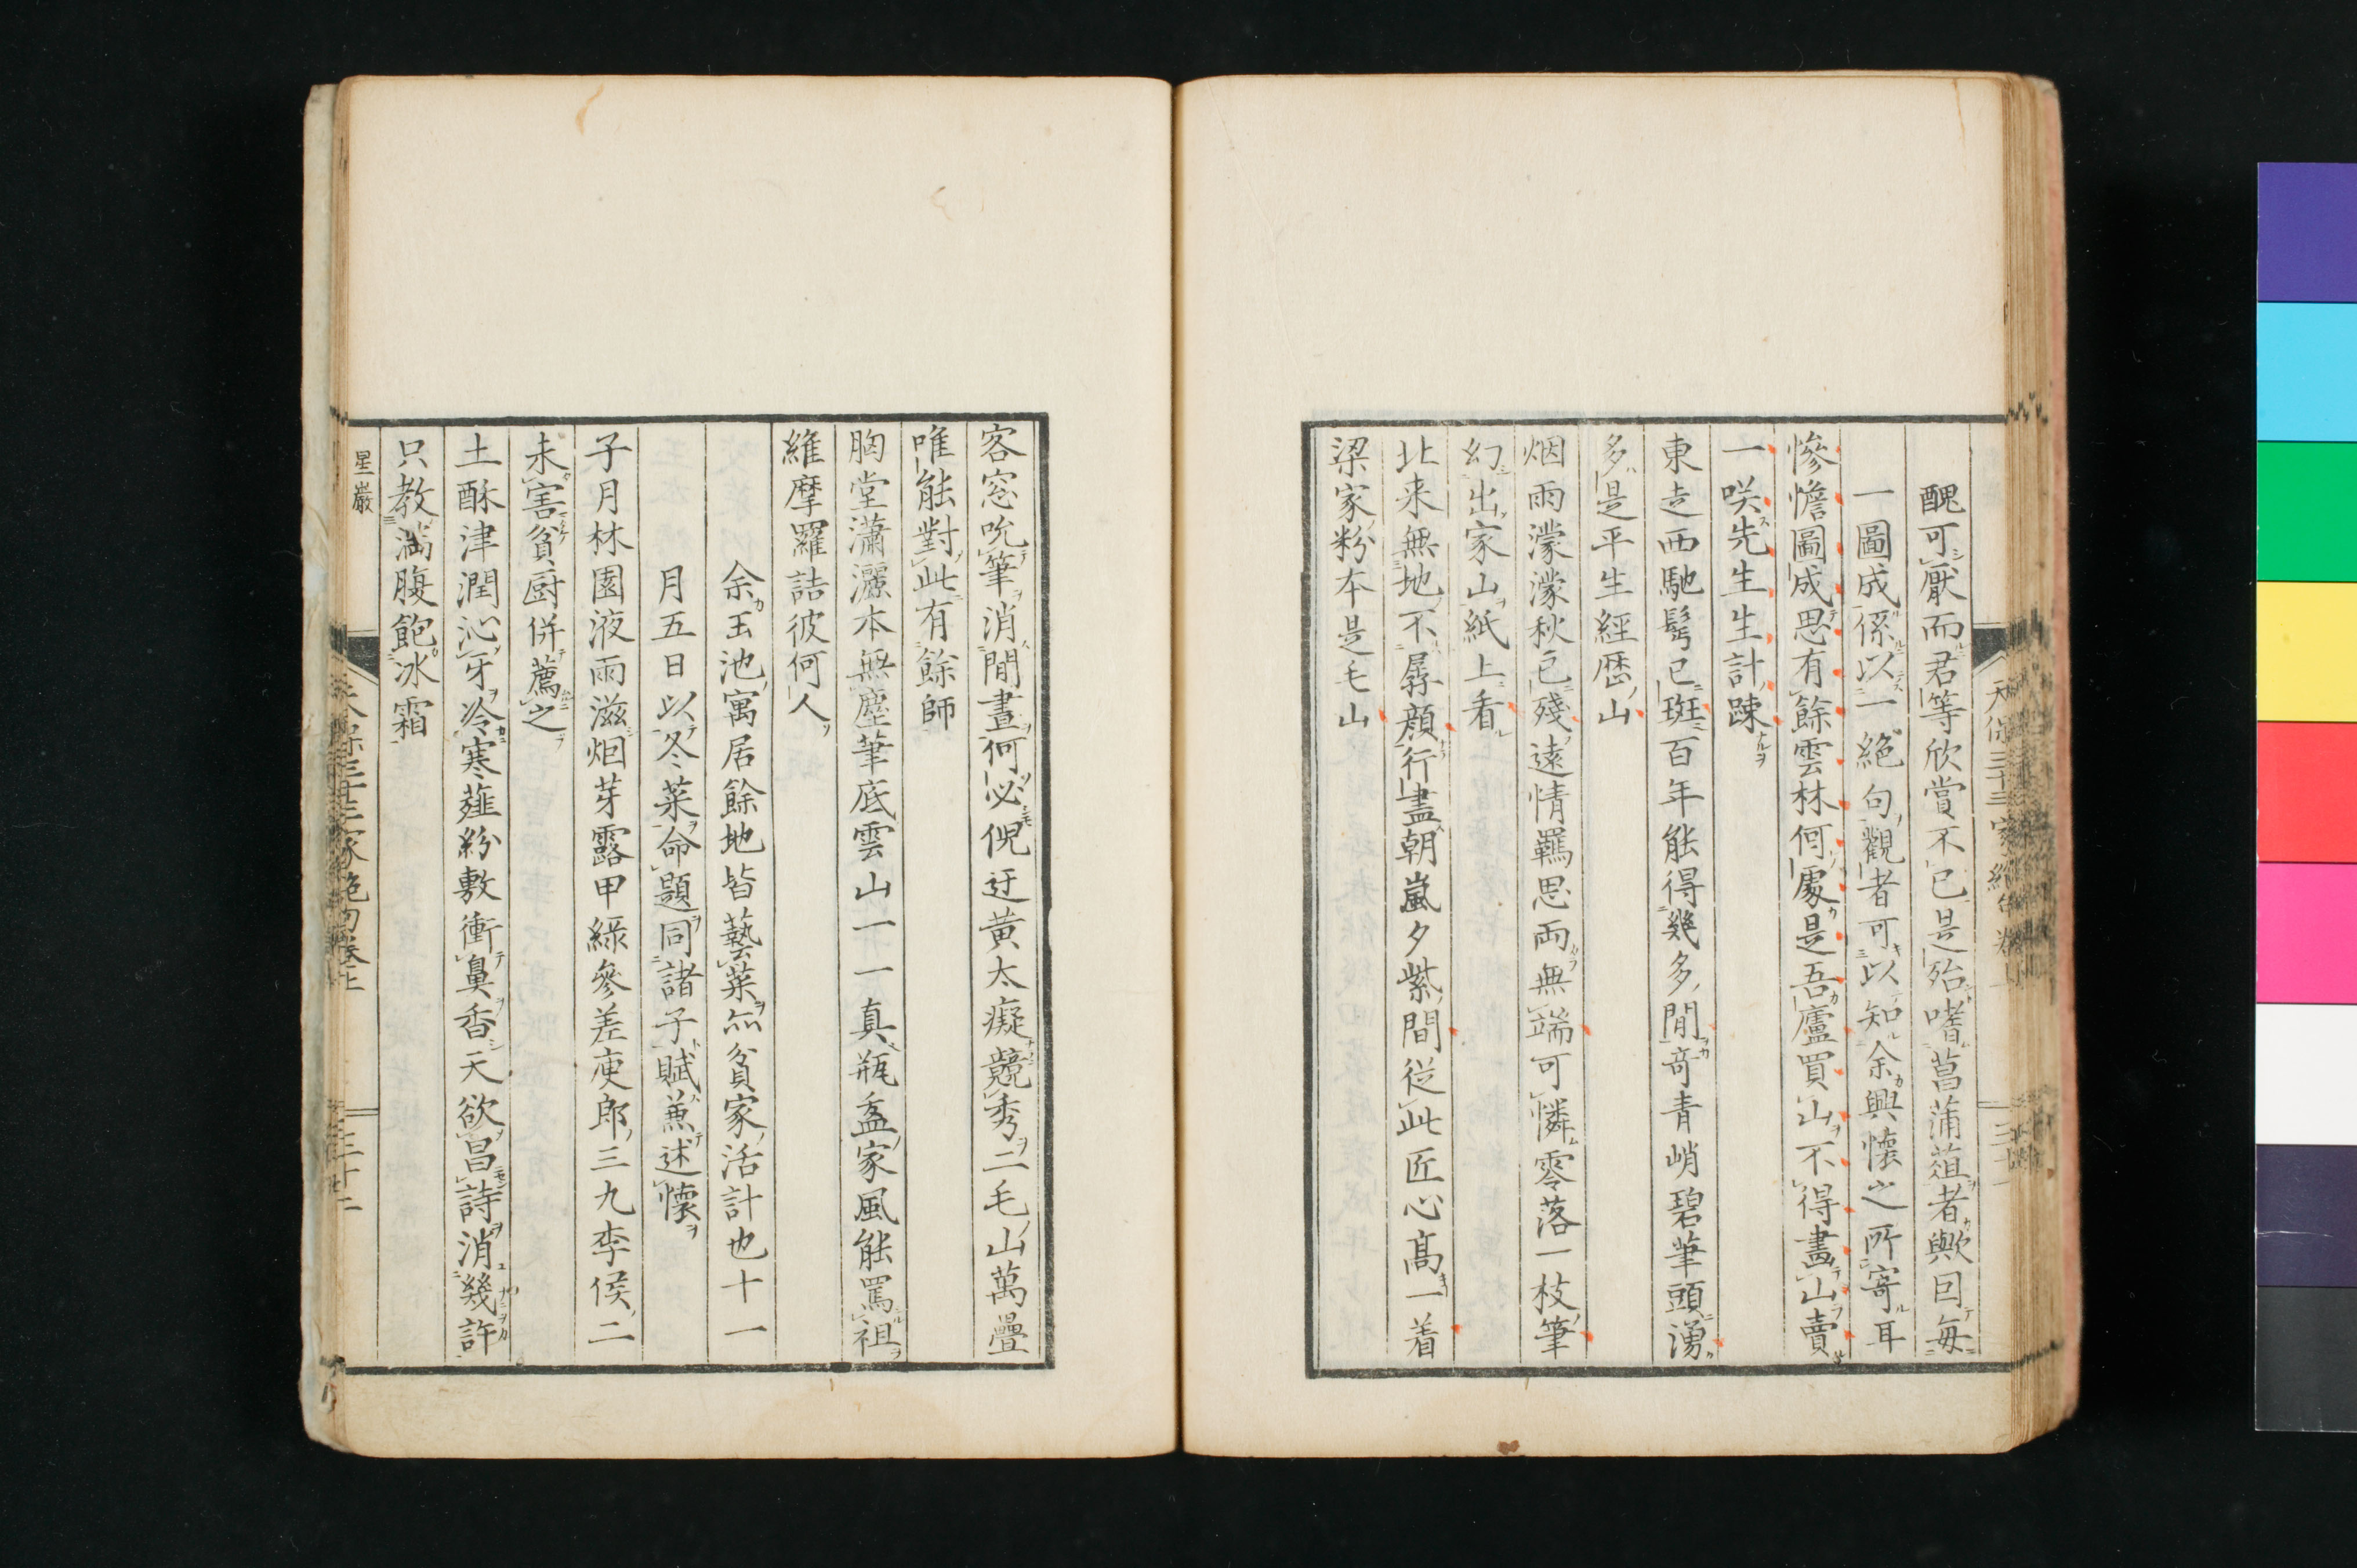 醜可厭而君等欣賞不已是殆嗜菖蒲葅者歟囙每
一圖成係以一絕句觀者可以知余興懷之所寄耳
慘憺圖成思有餘雲林何處是吾廬買山不得畫山賣
一咲先生生計踈
東走西馳鬂已斑百年能得幾多閒奇青峭碧筆頭湧
多是平生經歷山
烟雨濛濛秋已殘遠情羈思兩無端可憐零落一枝筆
幻出家山紙上看
北来無地不孱顔行盡朝嵐夕紫間從此匠心髙一着
梁家粉本是毛山
客窓吮筆消閒晝何必倪迂黄太癡競秀二毛山萬疊
唯能對此有餘師
胸堂瀟灑本無塵筆底雲山一一真瓶盂家風能罵祖
維摩羅詰彼何人
余玉池寓居餘地皆藝菜亦貧家活計也十一
月五日以冬菜命題同諸子賦兼述懷
子月林園液雨滋烟芽露甲綠參差庾郎三九李侯二
未害貧厨併薦之
土酥津潤沁牙冷寒薤紛敷衝鼻香天欲昌詩消幾許
只教滿腹飽冰霜
星巖
天保三十三家絶句卷上
三十二